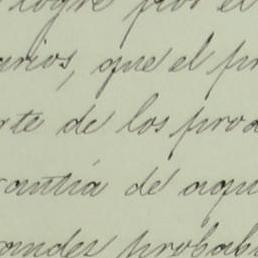 logre por el
arios, que el pr
rte de los prod
rantía de aqu
randes probab